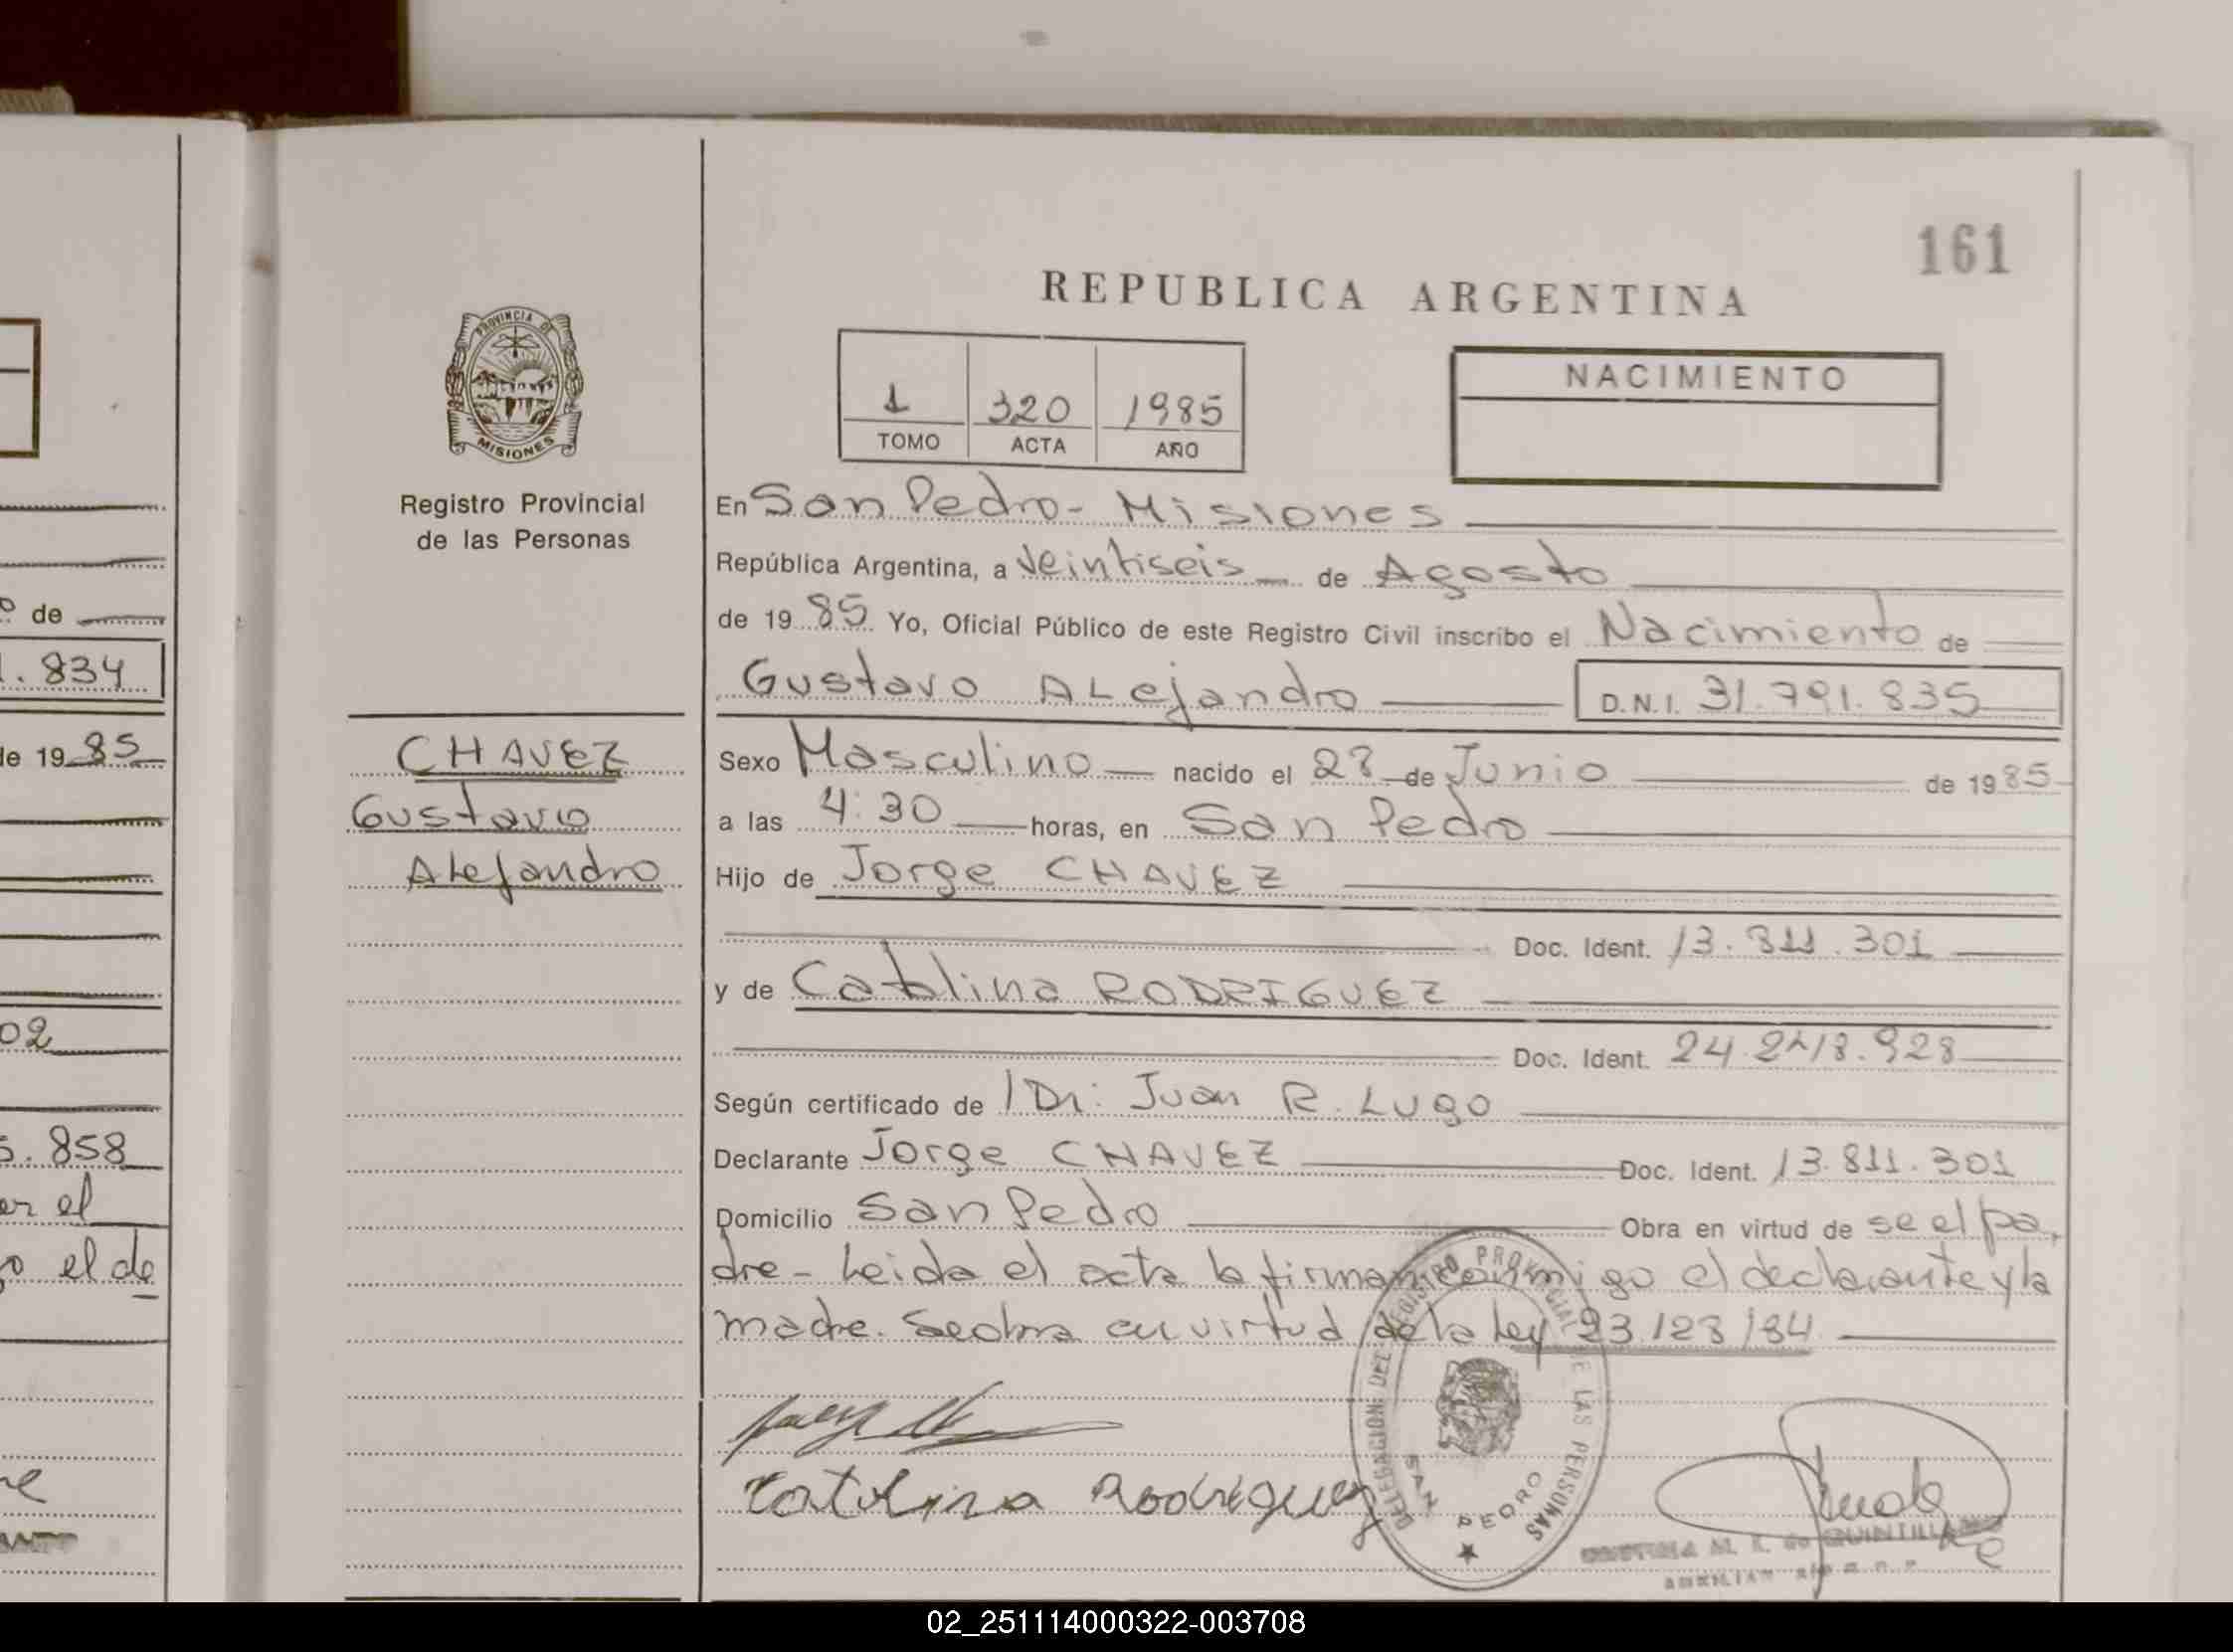 161
REPUBLICA ARGENTINA
PROVINCIA DE
MISIONES
Registro Provincial
de las Personas
1 320 1985
TOMO ACTA AÑO
NACIMIENTO
En San Pedro - Misiones
República Argentina, a veintiseis de Agosto
de 1985 Yo, Oficial Público de este Registro Civil inscribo el Nacimiento de
Gustavo ALejandro D.N.I. 31.791.835
CHAVEZ
Gustavo
ALejandro
Sexo Masculino nacido el de Junio de 1985
a las 4:30 horas, en San Pedro
Hijo de Jorge CHAVEZ
Doc. Ident. 13.811.301
y de Catalina RODRIGUEZ
Doc. Ident. 24. .928
Según certificado de Dr: Juan R. Lugo
Declarante Jorge CHAVEZ Doc. Ident. 13.811.301
Domicilio San Pedro Obra en virtud de se el pa,
dre - Leida el acta la firman conmigo el declarante y la
madre. Se obra en virtud de la Ley 23.128/84
Catalina Rodriguez
DELEGACION DEL REGISTRO PROVINCIAL DE LAS PERSONAS
SAN PEDRO
o de
1.834
de 1985
02
5.858
er el
o el de
02_251114000322-003708